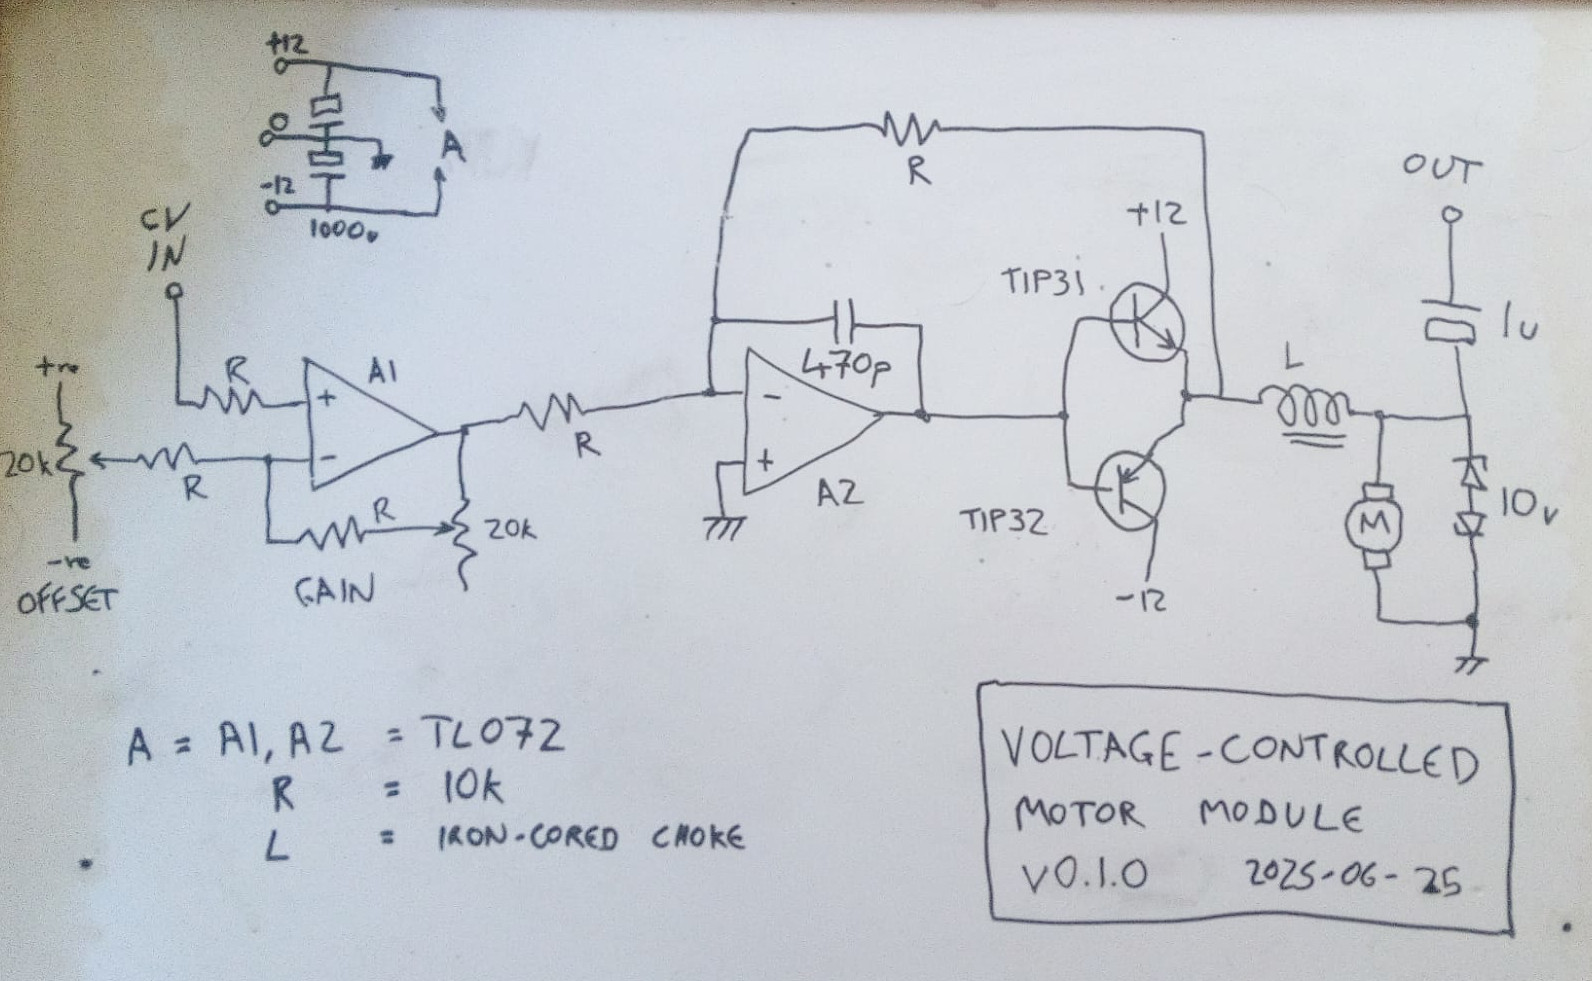 +12
0
-12
1000u
A
CV
IN
R
+
-
A1
+ve
20k
-ve
OFFSET
R
R
20k
GAIN
R
R
470p
-
+
A2
TIP31
+12
TIP32
-12
L
OUT
1u
M
10v
A = A1, A2 = TL072
R = 10k
L = IRON-CORED CHOKE
VOLTAGE-CONTROLLED
MOTOR MODULE
V0.1.0 2025-06-25